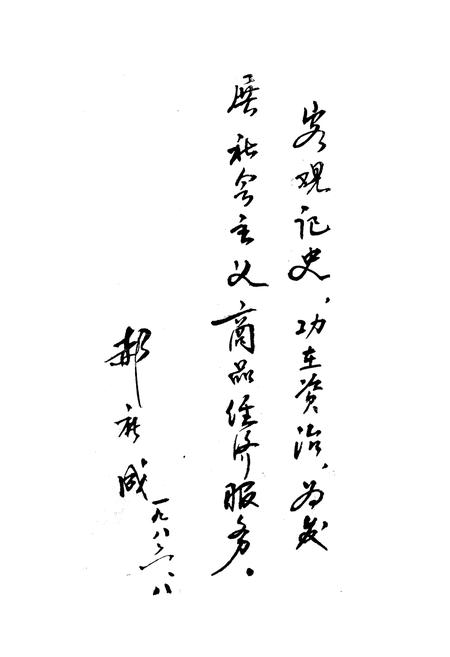 客观记史、功在资治、为发
展社会主义商品经济服务。
郝 成
一九八六、八